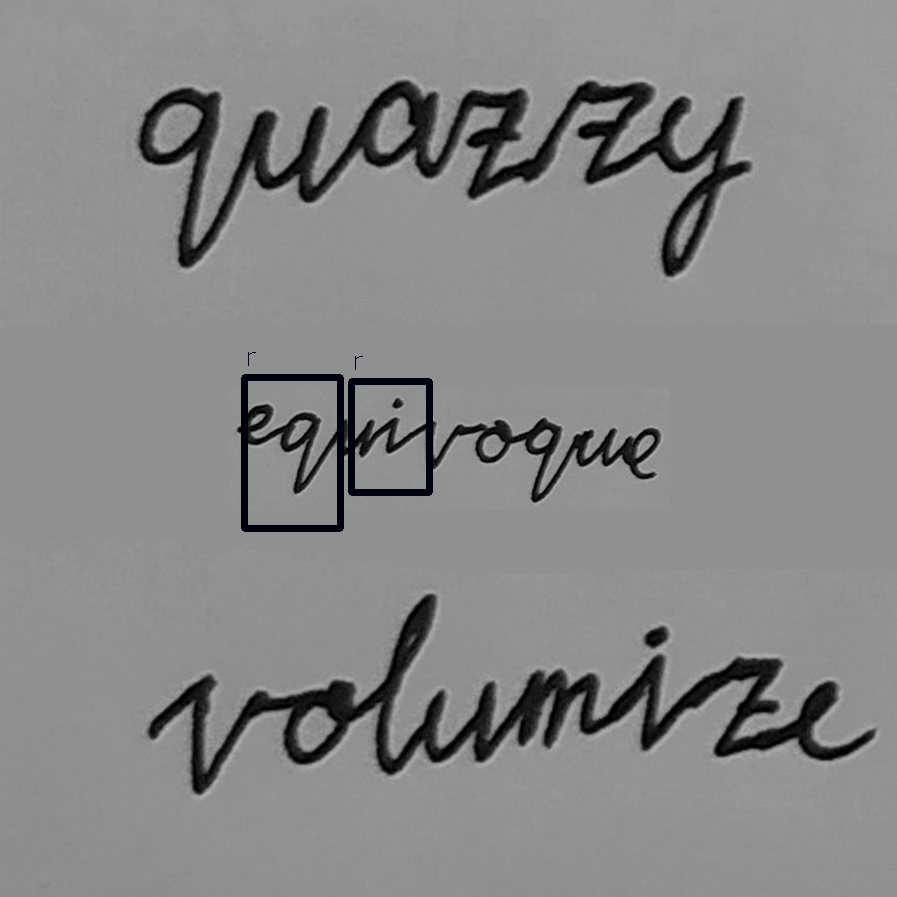 quazzy
r r
equivoque
volumize